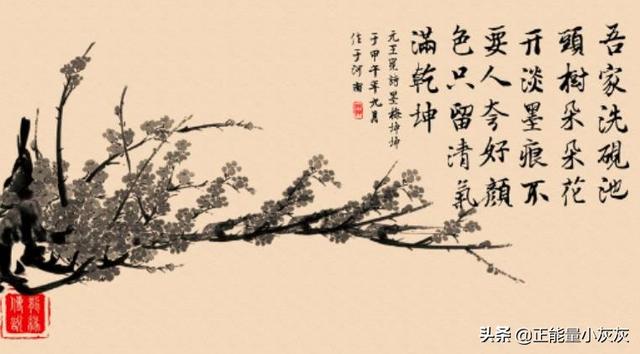 吾家洗硯池
頭樹朵朵花
开淡墨痕不
要人夸好顏
色只留清氣
滿乾坤
元王冕詩墨梅坤坤
于甲午年九月
于河南
头条 @正能量小灰灰